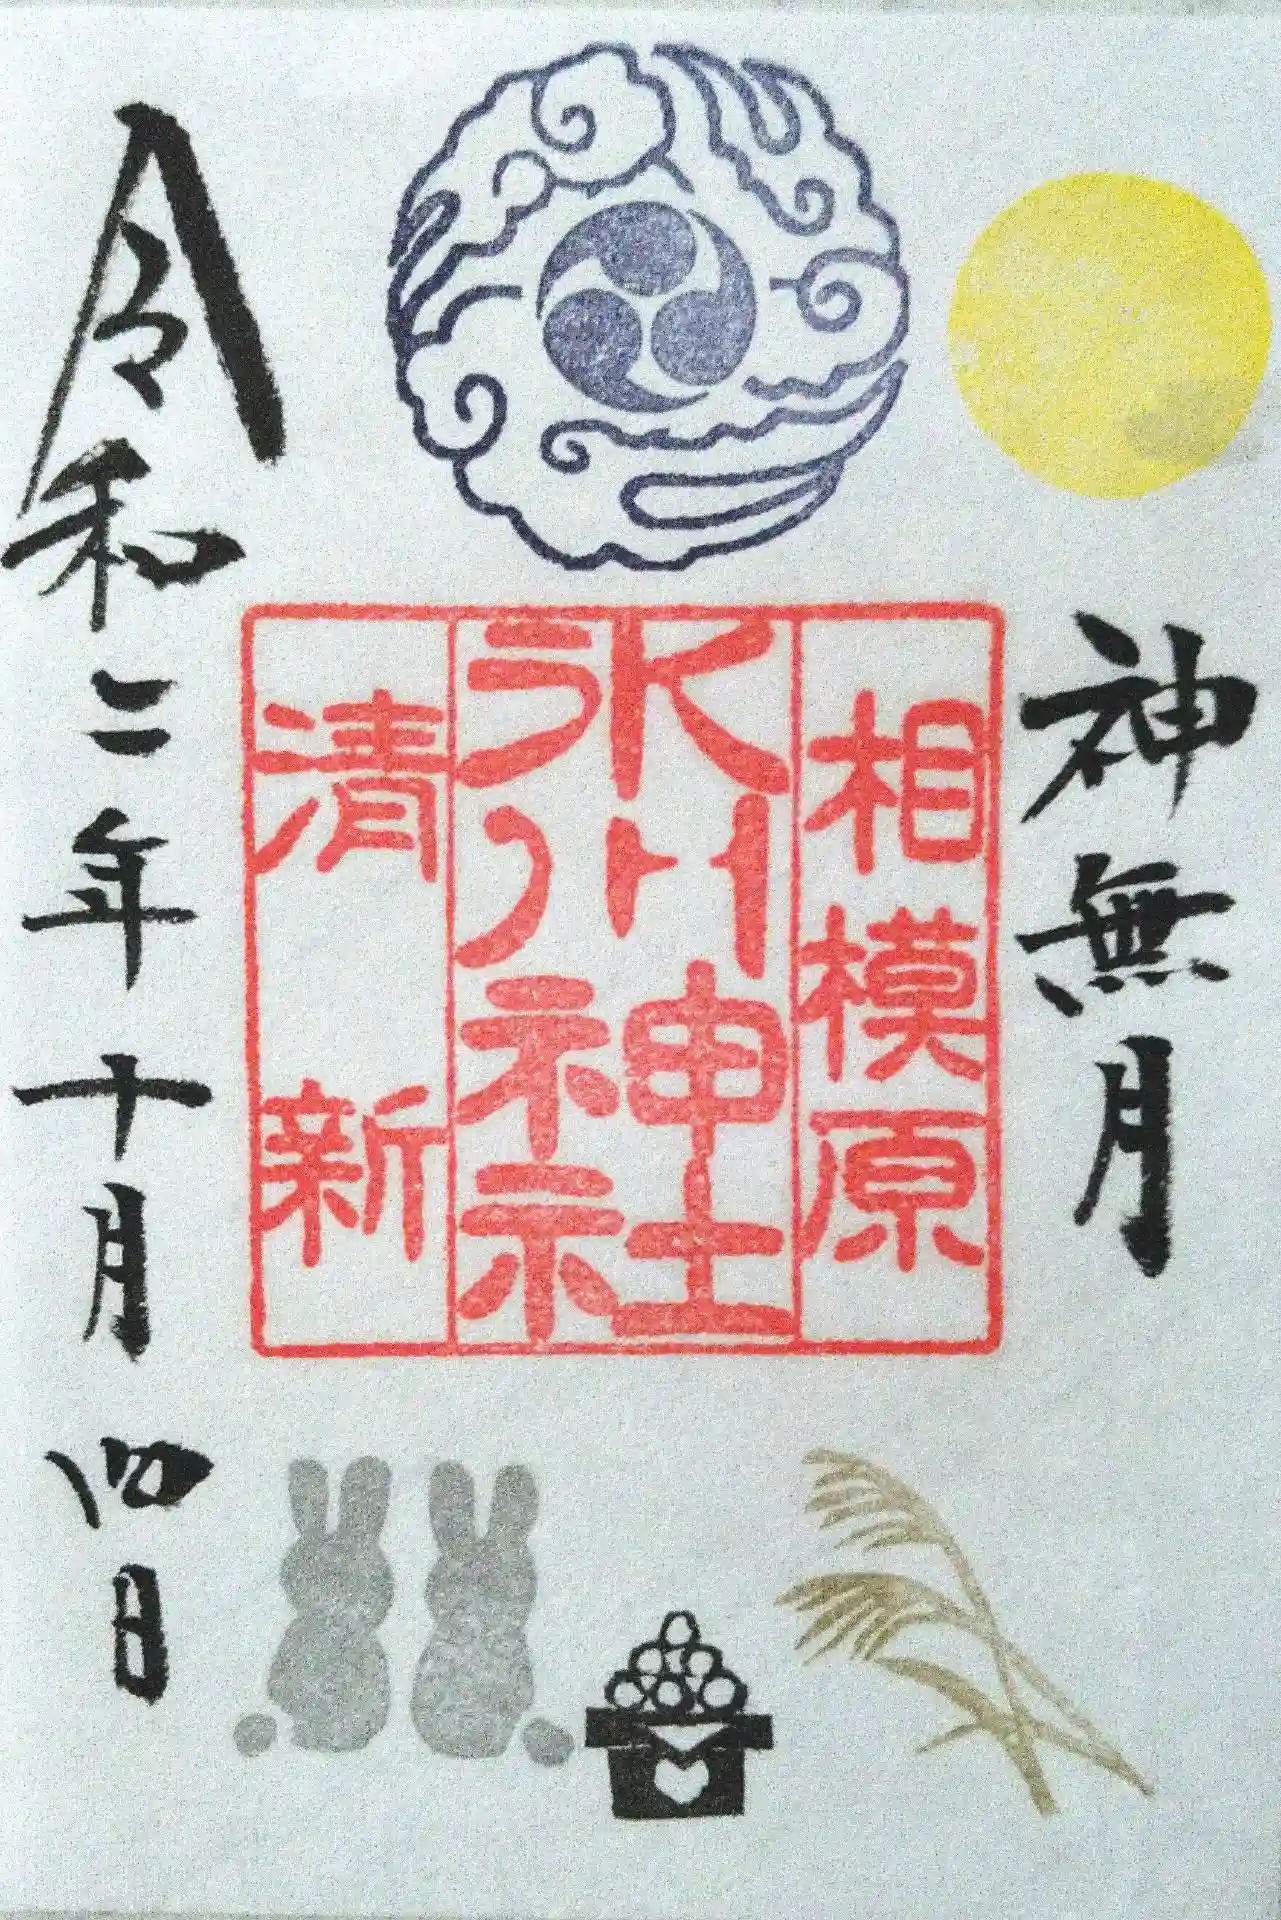 神無月
相模原
氷川神社
清新
令和二年十月四日